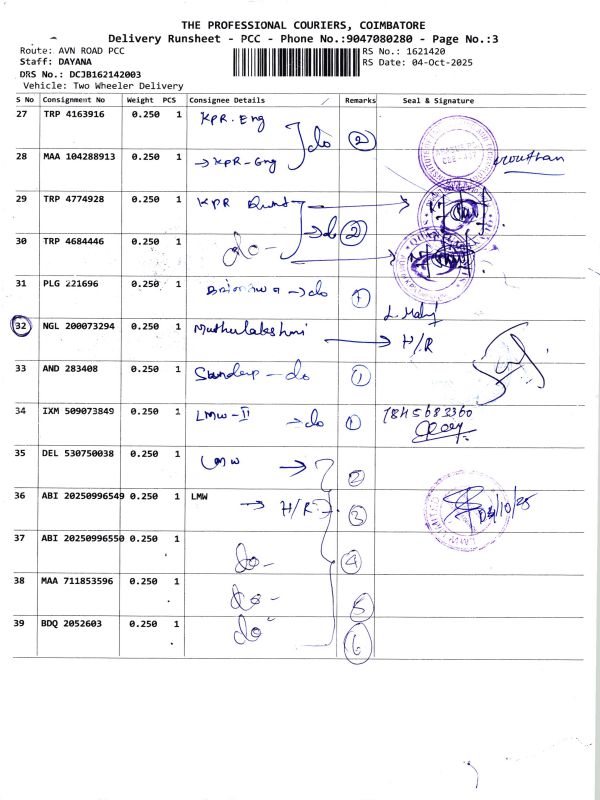 THE PROFESSIONAL COURIERS, COIMBATORE
Delivery Runsheet - PCC - Phone No.:9047080280 - Page No.:3
Route: AVN ROAD PCC
RS No.: 1621420
Staff: DAYANA
RS Date: 04-Oct-2025
DRS No.: DCJB162142003
Vehicle: Two Wheeler Delivery
S No Consignment No Weight PCS Consignee Details Remarks Seal & Signature
27 TRP 4163916 0.250 1 KPR-Eng do 2
28 MAA 104288913 0.250 1 → KPR-Eng
29 TRP 4774928 0.250 1 KPR → do 2
30 TRP 4684446 0.250 1 do -
31 PLG 221696 0.250 1 → do 1
32 NGL 200073294 0.250 1 Muthulakshmi → H/R
33 AND 283408 0.250 1 Sandeep - do 1
34 IXM 509073849 0.250 1 LMW-II → do 1 7845683360
35 DEL 530750038 0.250 1 LMW → 2
36 ABI 20250996549 0.250 1 LMW → H/R 3
37 ABI 20250996550 0.250 1 do - 4
38 MAA 711853596 0.250 1 do - 5
39 BDQ 2052603 0.250 1 do - 6